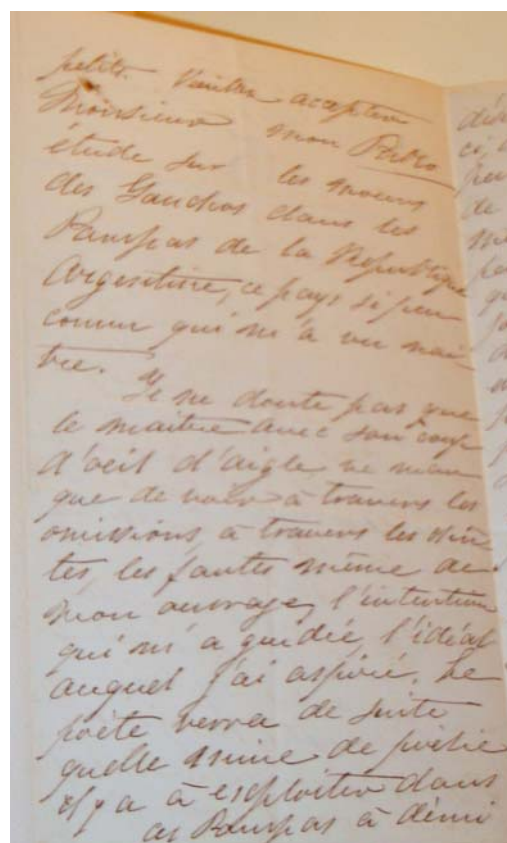 petits. Veuillez accepter
Monsieur mon Pablo
étude sur les moeurs
des Gauchos dans les
Pampas de la République
Argentine, ce pays si peu
connu qui m'a vu naî
tre.
Je ne doute pas que
le maître avec son coup
d'oeil d'aigle ne man
que de voir à travers les
omissions, à travers les
les fautes même de
mon ouvrage, l'intention
qui m'a guidée, l'idéal
auquel j'ai aspiré. Le
poète verra de suite
quelle mine de poésie
il y a à exploiter dans
ces Pampas à demi